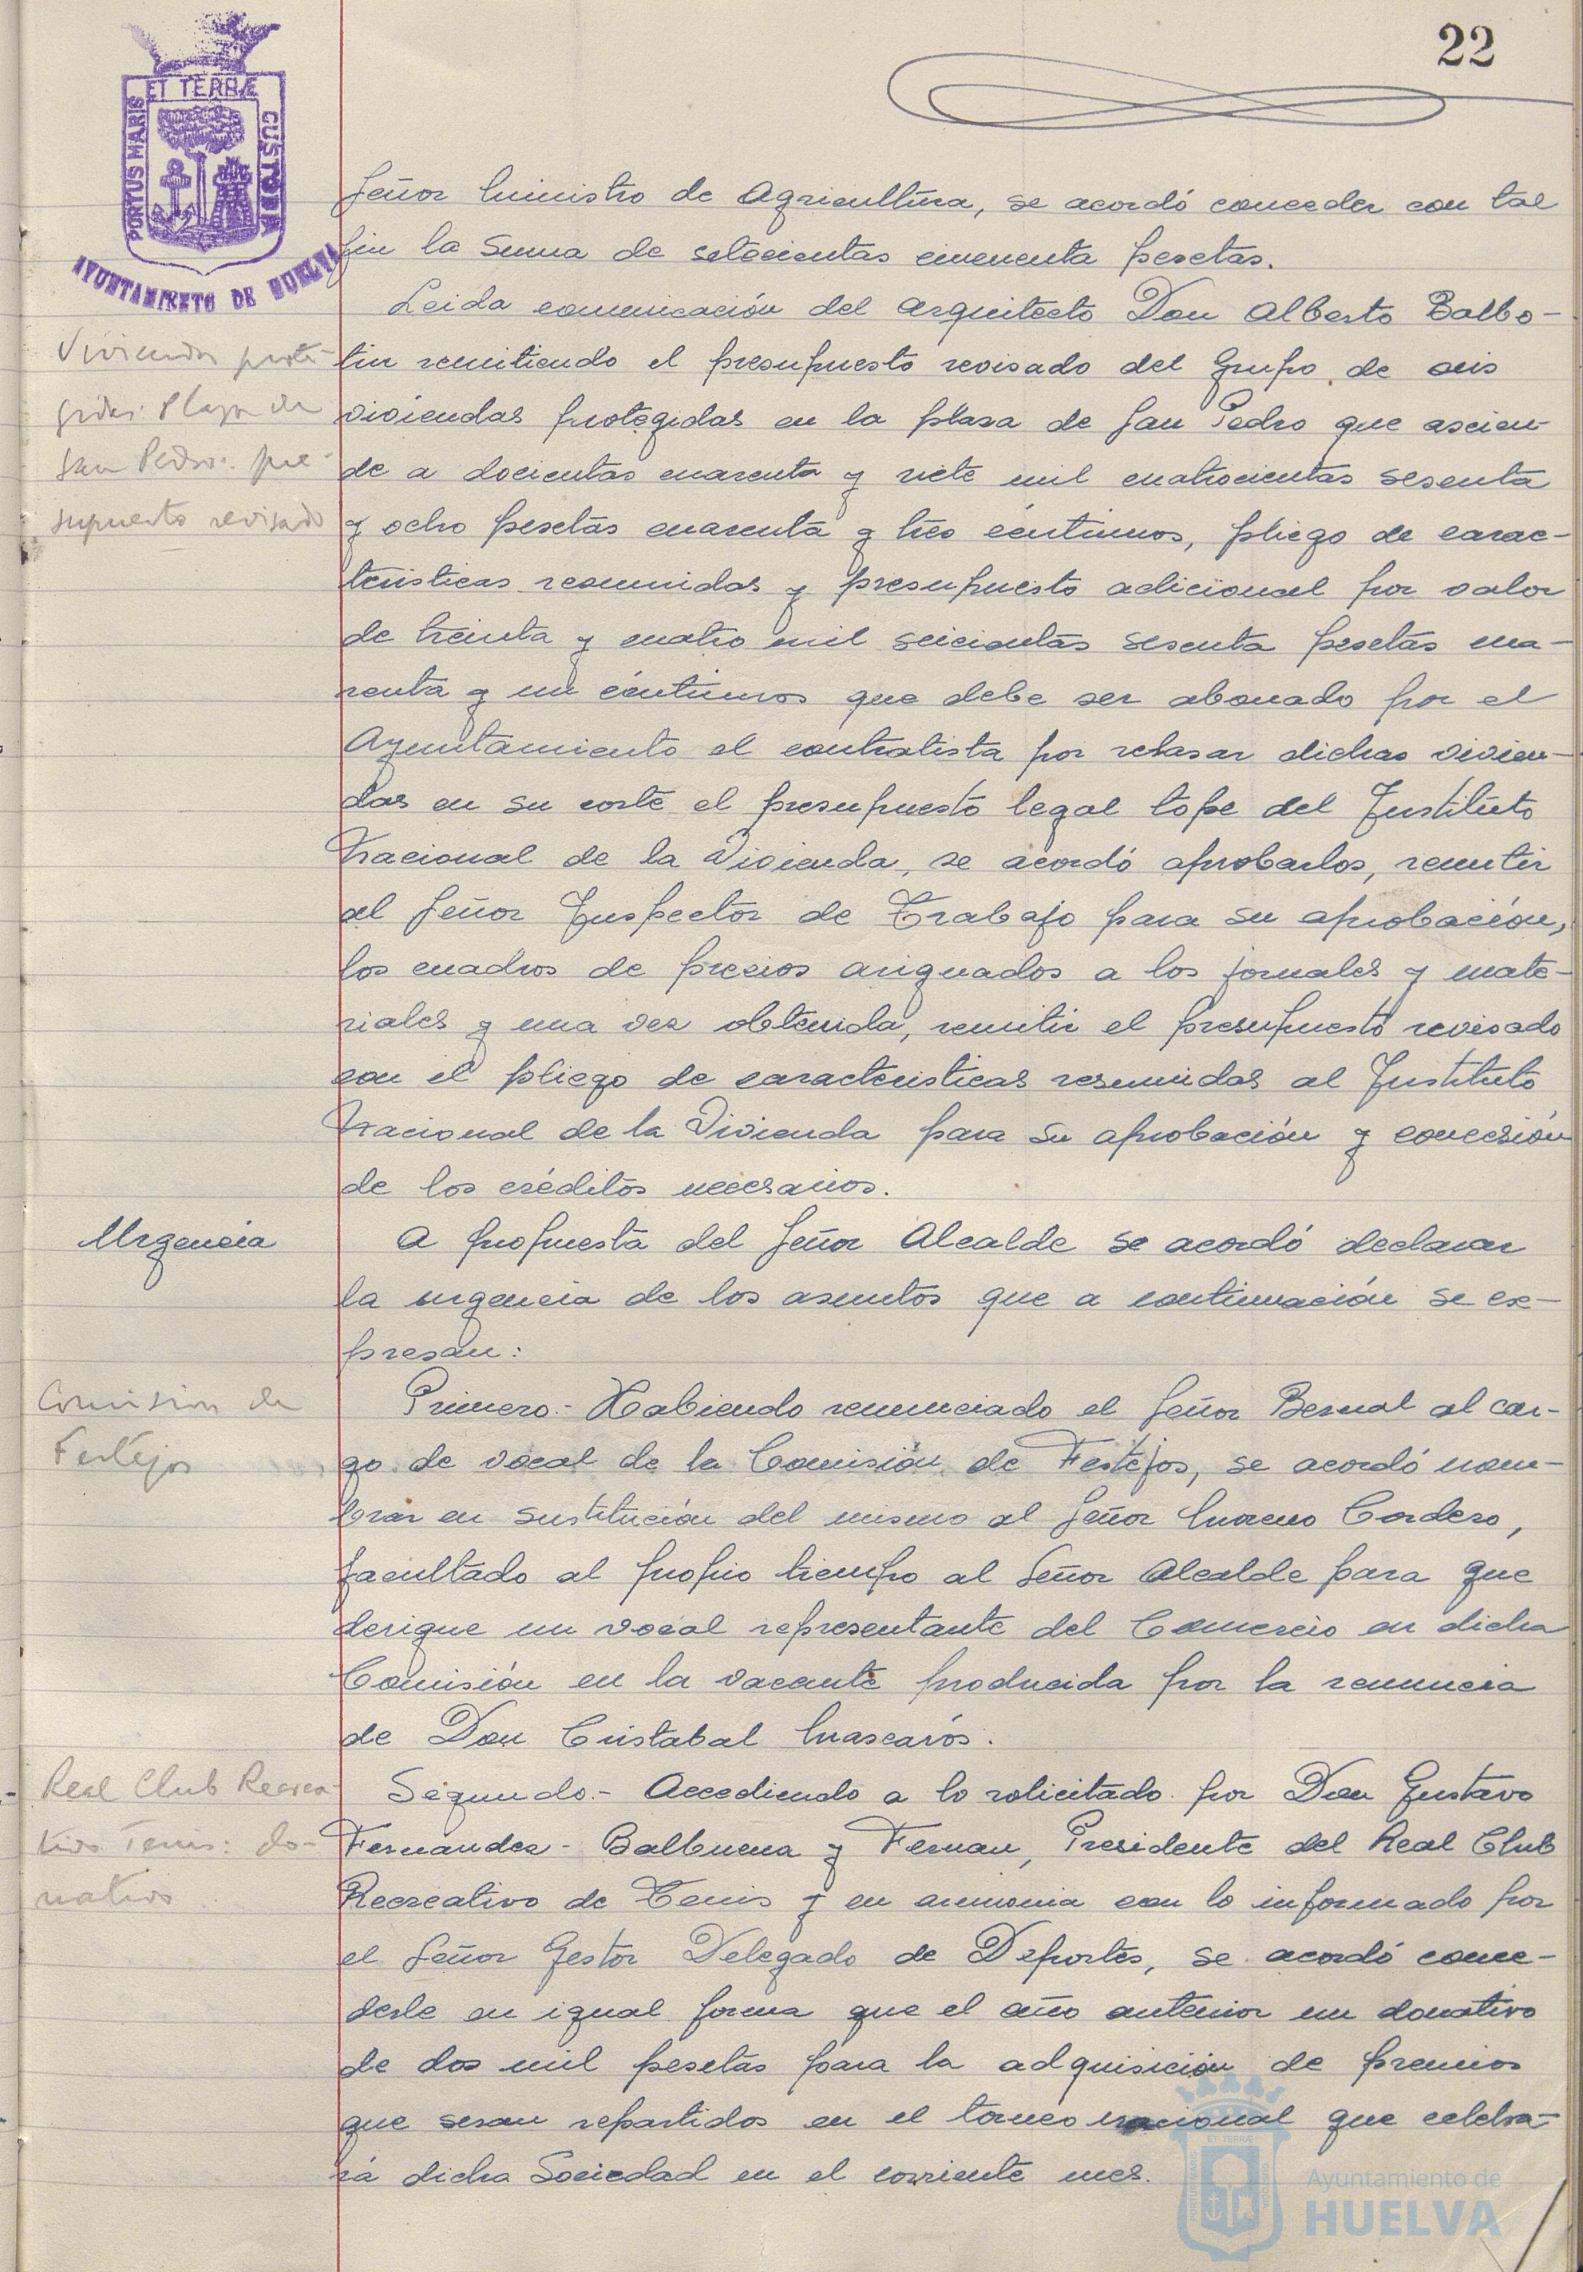 22
PORTUS MARIS ET TERRÆ CUSTODIA
AYUNTAMIENTO DE HUELVA
Señor Ministro de Agricultura, se acordó conceder con tal
fin la suma de setecientas cincuenta pesetas.
Leida comunicación del arquitecto Don Alberto Balbo-
Viviendas prote-
tin remitiendo el presupuesto revisado del grupo de seis
gidas: Plaza de
viviendas protegidas en la plaza de San Pedro que ascien-
San Pedro: pre-
de a docientas cuarenta y siete mil cuatrocientas sesenta
supuesto revisado
y ocho pesetas cuarenta y tres céntimos, pliego de carac-
teristicas resumidas y presupuesto adicional por valor
de treinta y cuatro mil seicientas sesenta pesetas cua-
renta y un céntimos que debe ser abonado por el
Ayuntamiento al contratista por rebasar dichas vivien-
das en su coste el presupuesto legal tope del Instituto
Nacional de la Vivienda, se acordó aprobarlos, remitir
al Señor Inspector de Trabajo para su aprobación,
los cuadros de precios asignados a los jornales y mate-
riales y una vez obtenida, remitir el presupuesto revisado
con el pliego de caracteristicas resumidas al Instituto
Nacional de la Vivienda para su aprobación y concesión
de los créditos necesarios.
Urgencia
A propuesta del Señor Alcalde se acordó declarar
la urgencia de los asuntos que a continuación se ex-
presan:
Comision de
Primero.- Habiendo renunciado el Señor Bernal al car-
Festejos
go de vocal de la Comisión de Festejos, se acordó nom-
brar en sustitución del mismo al Señor Moreno Cordero,
facultado al propio tiempo al Señor Alcalde para que
desigue un vocal representante del Comercio en dicha
Comisión en la vacante producida por la renuncia
de Don Cristabal Mascarós.
Real Club Recrea-
Segundo.- Accediendo a lo solicitado por Don Gustavo
tivo Tenis: do-
Fernandez-Balbuena y Fernan, Presidente del Real Club
nativo
Recreativo de Tenis y en armonia con lo informado por
el Señor Gestor Delegado de Deportes, se acordó conce-
derle en igual forma que el año anterior un donativo
de dos mil pesetas para la adquisición de premios
que seran repartidos en el torneo nacional que celebra-
rá dicha Sociedad en el corriente mes.
Ayuntamiento de
HUELVA